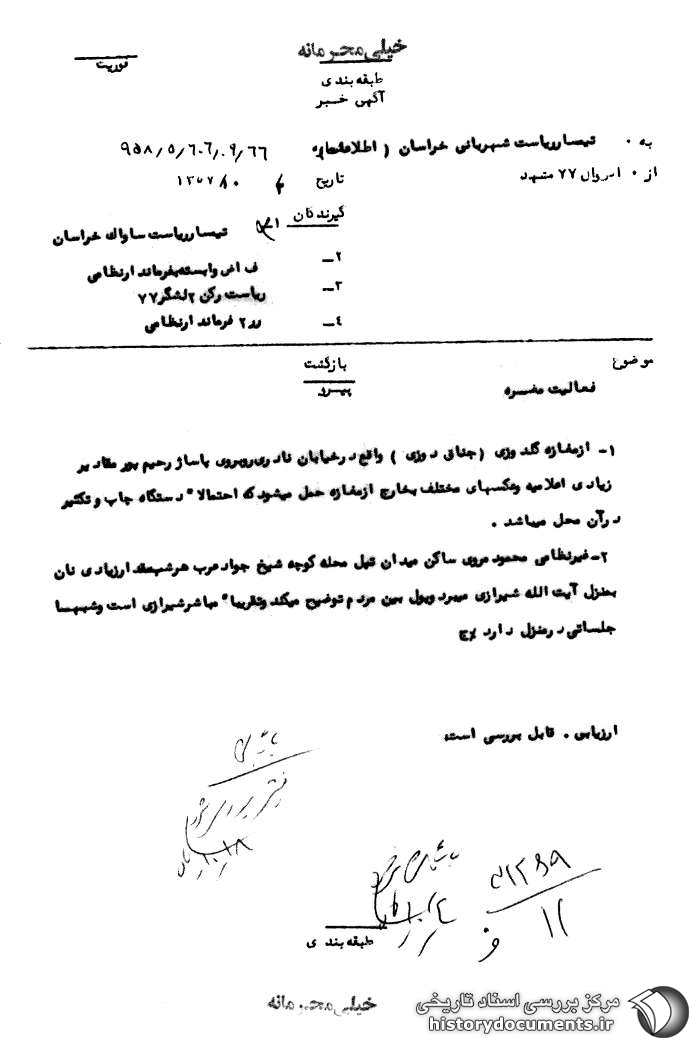 خیلی محرمانه
فوریت
طبقه بندی
آگهی خبر
به . تیمسار ریاست شهربانی خراسان ( اطلاعات )
۹۵۸/۵/۶۰۶/۰۹/۶۶
از . لشکر ۷۷ مشهد
تاریخ ۱۳۵۷/۱۰
گیرندگان
۱ـ تیمسار ریاست ساواک خراسان
۲ـ ف اض وابسته بفرماندار نظامی
۳ـ ریاست رکن ۲ لشگر ۷۷
۴ـ رر ۲ فرماندار نظامی
موضوع
بازگشت
پیرو
فعالیت مضره
۱ـ ازمغازه گلدوزی ( جناقی دوزی ) واقع در خیابان نادری روبروی پاساژ رحیم پور مقادیر
زیادی اعلامیه وعکسهای مختلف بخارج ازمغازه حمل میشود که احتمالا" دستگاه چاپ و تکثیر
درآن محل میباشد .
۲ـ غیرنظامی محمود مروی ساکن میدان تپل محله کوچه شیخ جواد عرب هرشب مقدار زیادی نان
بمنزل آیت الله شیرازی میبرد وپول بین مردم توضیح میکند وتقریبا" مباشر شیرازی است وشبهــا
جلساتی در منزل دارد
ارزیابی . قابل بررسی است
۱۰/۱۸
۱۰/۴
۱۱
طبقه بندی
خیلی محرمانه
مرکز بررسی اسناد تاریخی
historydocuments.ir